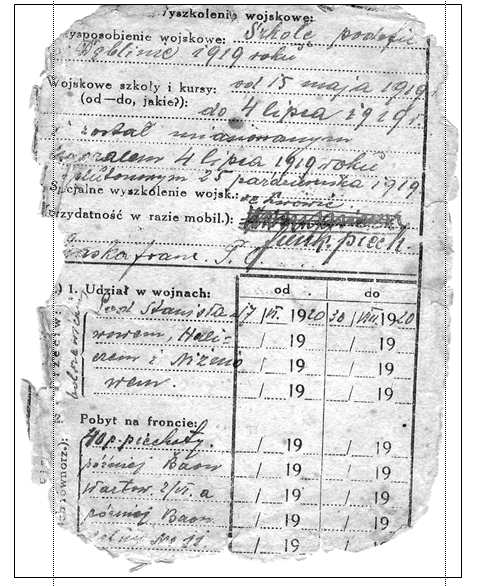 Wyszkolenie wojskowe:
Usposobienie wojskowe: Szkołę podofic
Dęblinie 1919 roku
Wojskowe szkoły i kursy: od 15 maja 1919 r.
(od—do, jakie?): do 4 lipca 1919 r.
i został mianowanym
kapralem 4 lipca 1919 roku
plutonowym 25 października 1919
Specjalne wyszkolenie wojsk.: we Lwowie
(przydatność w razie mobil.):
funk. piech.
franc.
1. Udział w wojnach: od do
Pod Stanisła 17/VI. 1920 30/VIII. 1920
wowem, Hali- / 19 / 19
czem i Niżnio / 19 / 19
wem. / 19 / 19
Pobyt na froncie:
40 p. piechoty. / 19 / 19
później Baon / 19 / 19
Wartow. 2/VI. a / 19 / 19
później Baon / 19 / 19
No 11 / 19 / 19